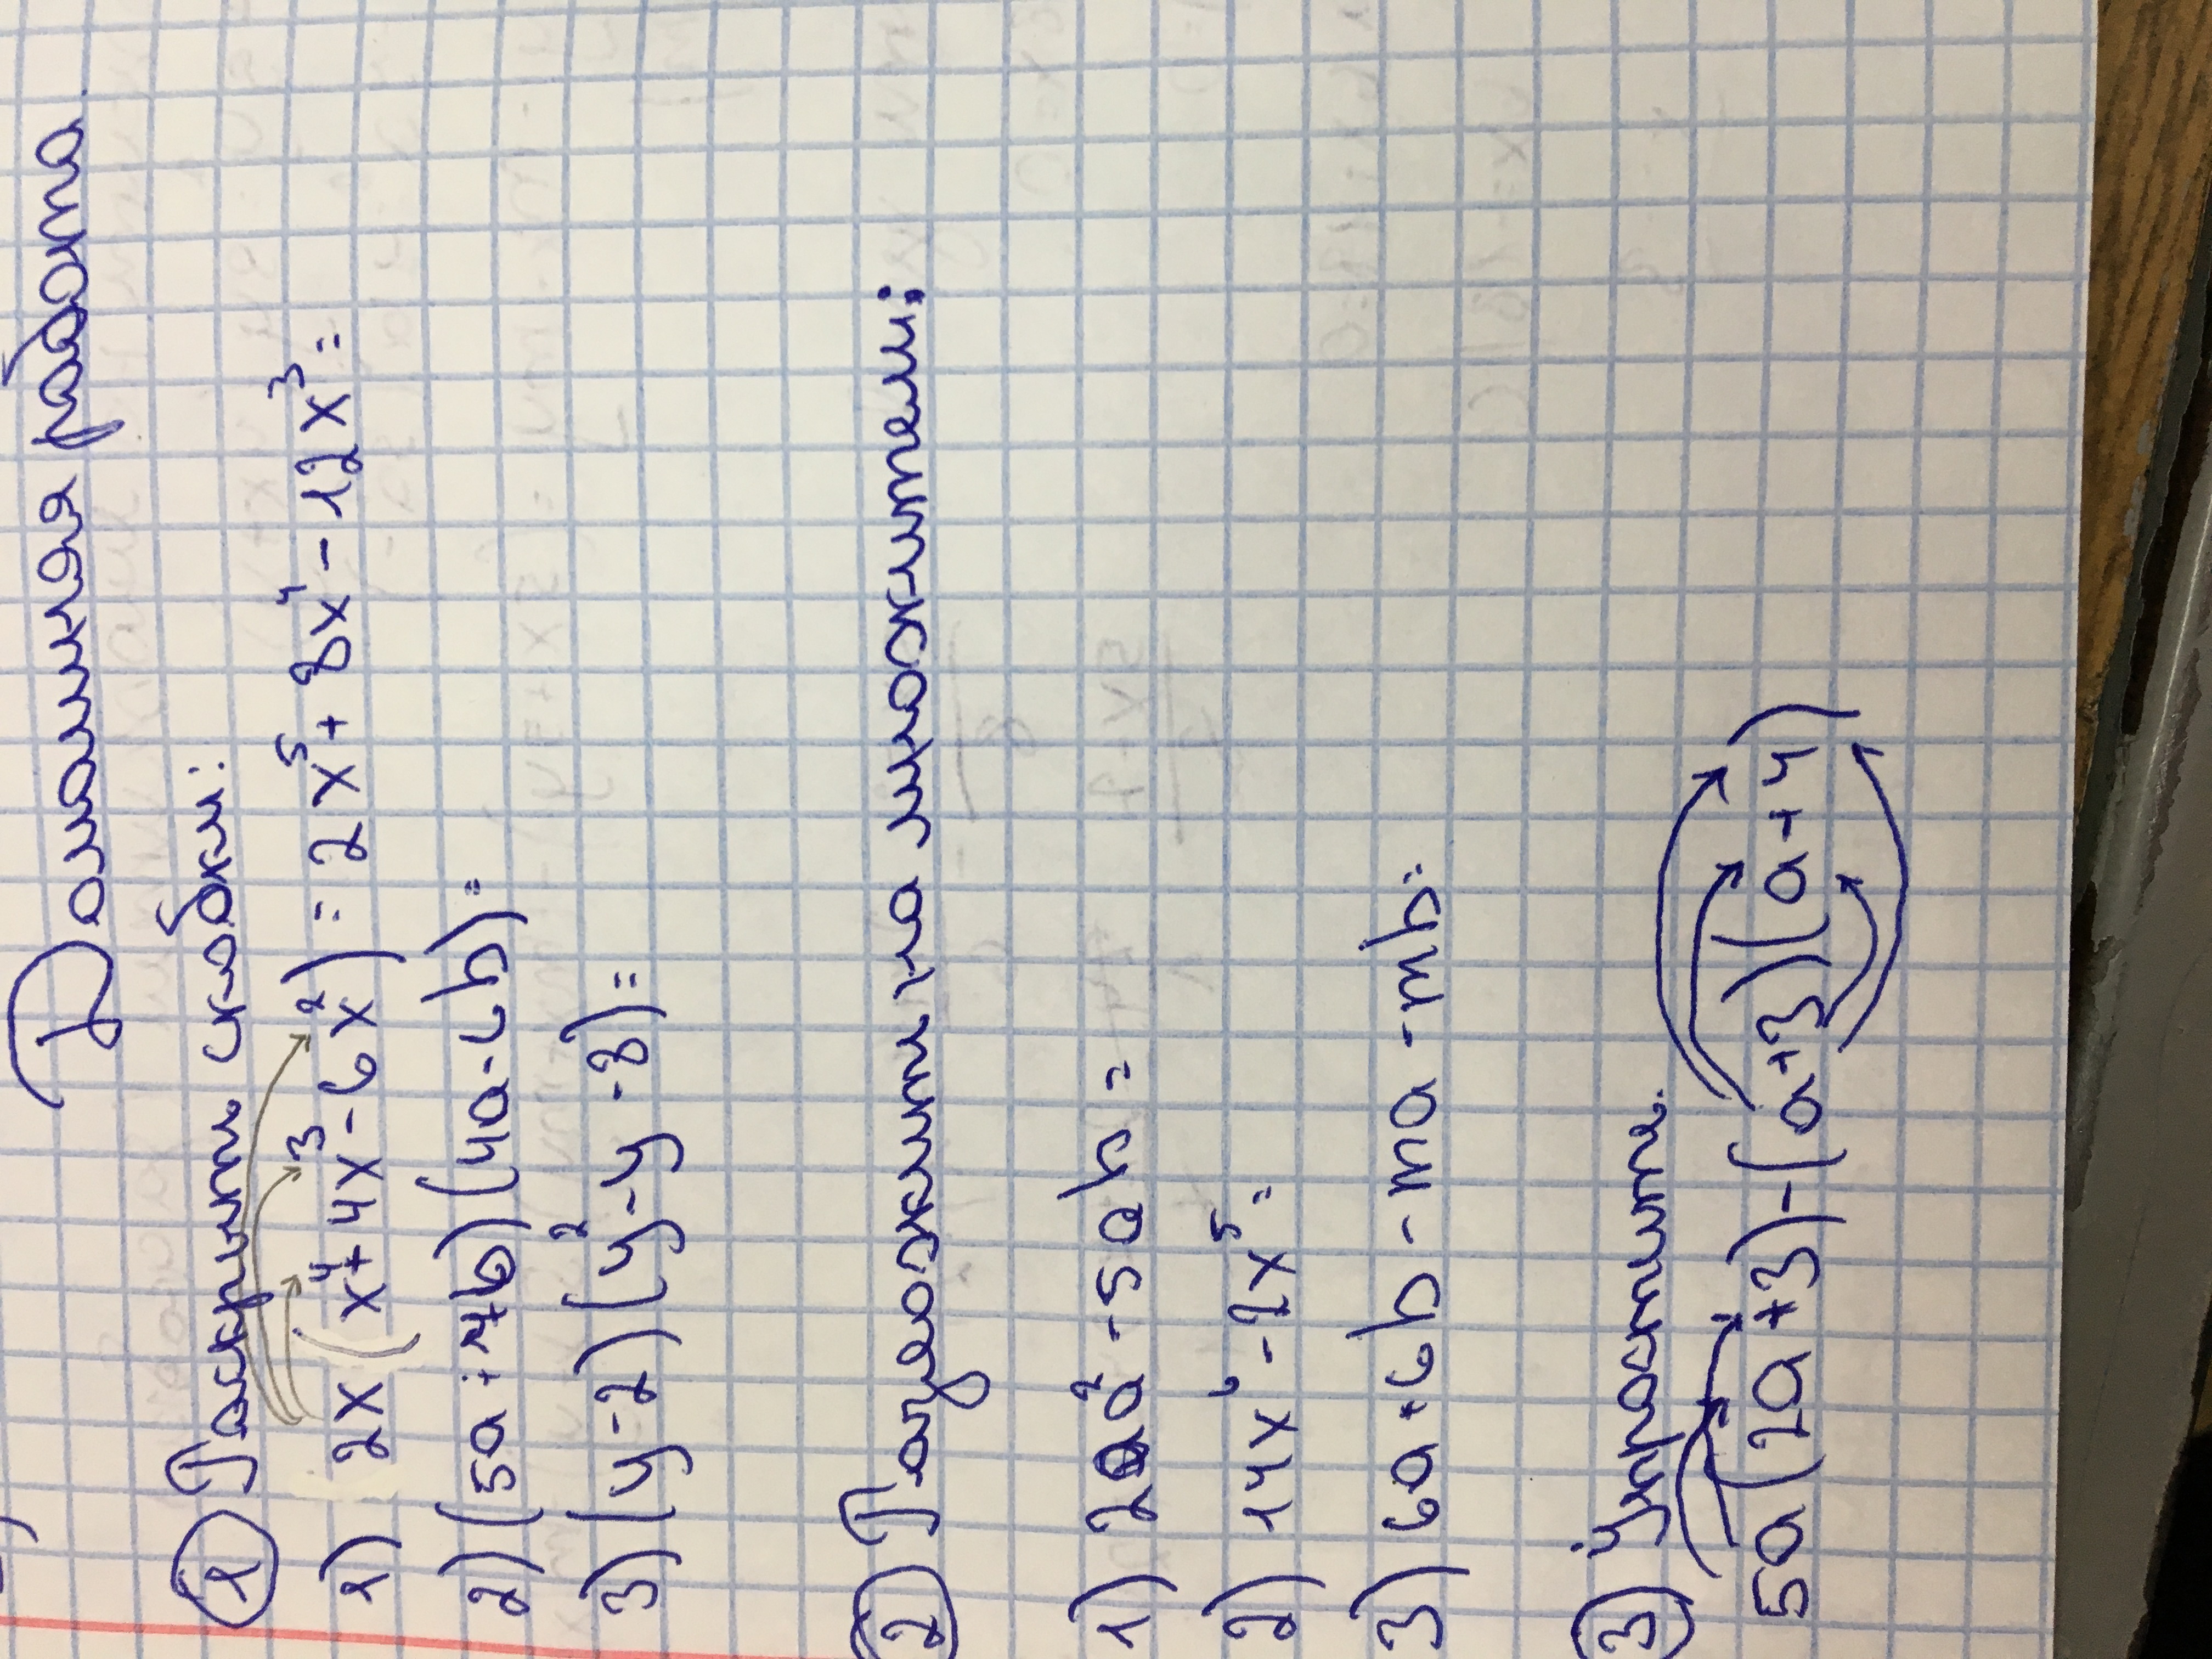 Домашняя работа
1 Раскрыть скобки:
1) 2x(x⁴+4x³-6x²)=2x⁵+8x⁴-12x³=
2) (5a+7b)(4a-6b)=
3) (y-2)(y²-y-8)=
2 Разложить на множители:
1) 2a²-5ab=
2) 14x⁶-2x⁵=
3) 6a+6b-ma-mb=
3 Упростите.
5a(2a+3)-(a+3)(a+4)